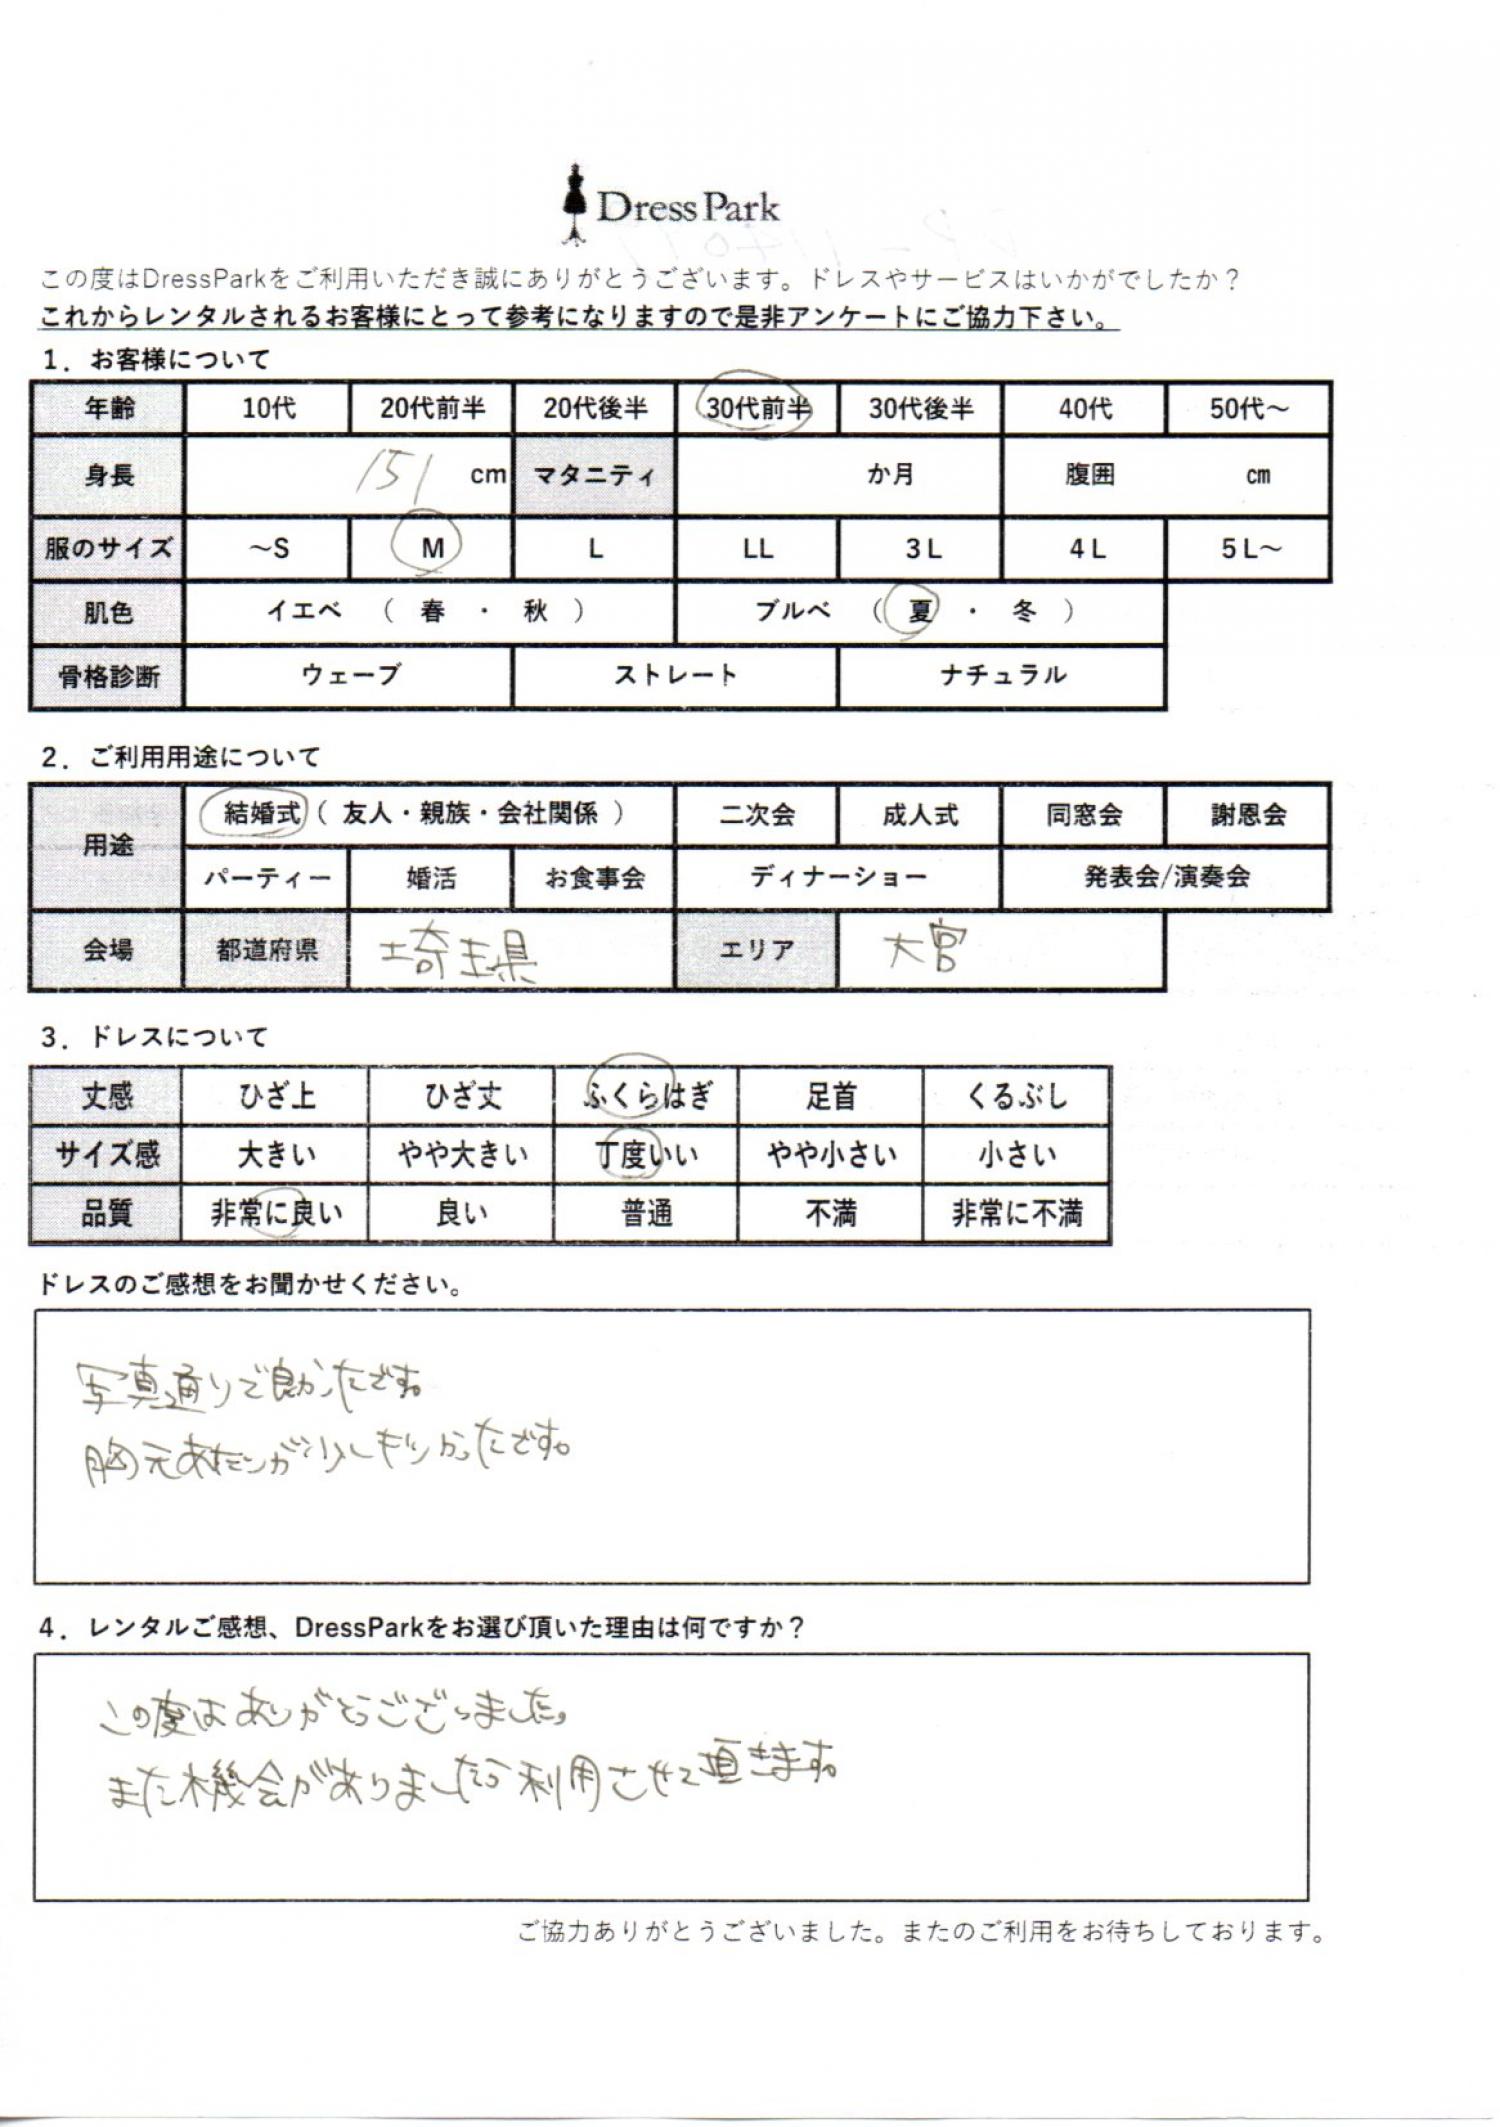 Dress Park
この度はDressParkをご利用いただき誠にありがとうございます。ドレスやサービスはいかがでしたか？
これからレンタルされるお客様にとって参考になりますので是非アンケートにご協力下さい。
1．お客様について
年齢 10代 20代前半 20代後半 30代前半 30代後半 40代 50代～
身長 151 cm マタニティ か月 腹囲 cm
服のサイズ ～S M L LL 3L 4L 5L～
肌色 イエベ （ 春 ・ 秋 ） ブルベ （ 夏 ・ 冬 ）
骨格診断 ウェーブ ストレート ナチュラル
2．ご利用用途について
用途 結婚式（ 友人・親族・会社関係 ） 二次会 成人式 同窓会 謝恩会
パーティー 婚活 お食事会 ディナーショー 発表会/演奏会
会場 都道府県 埼玉県 エリア 大宮
3．ドレスについて
丈感 ひざ上 ひざ丈 ふくらはぎ 足首 くるぶし
サイズ感 大きい やや大きい 丁度いい やや小さい 小さい
品質 非常に良い 良い 普通 不満 非常に不満
ドレスのご感想をお聞かせください。
写真通りで良かったです。
胸元あたりが少しかったです。
4．レンタルご感想、DressParkをお選び頂いた理由は何ですか？
この度はありがとうございました。
また機会がありましたら利用させて頂きます。
ご協力ありがとうございました。またのご利用をお待ちしております。